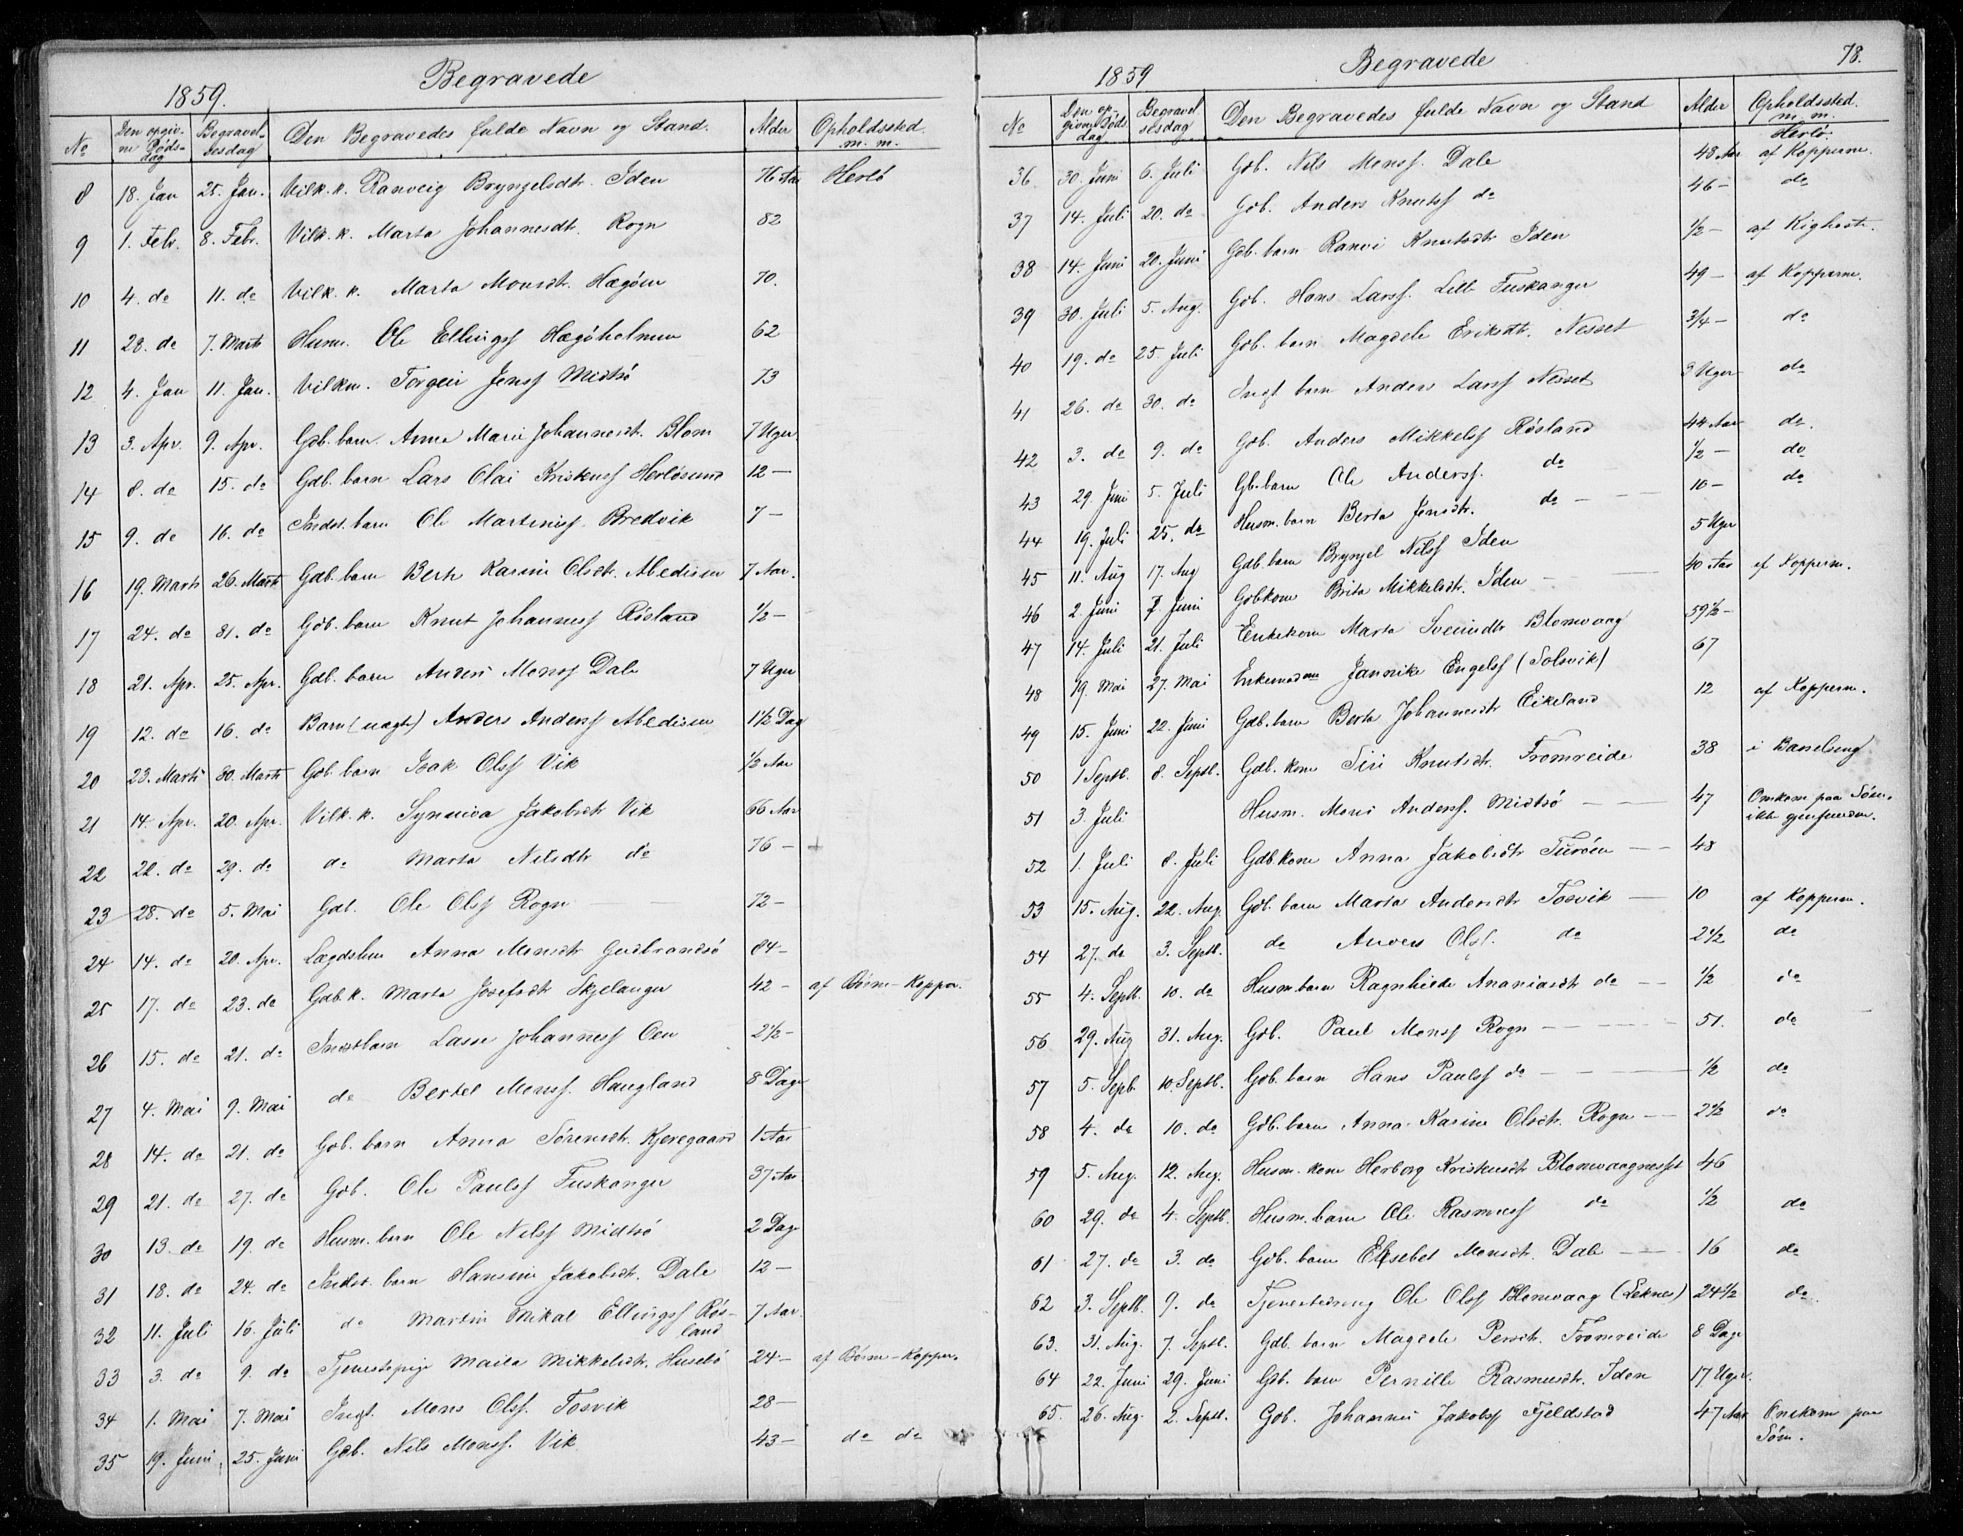 1859.
Begravede
No
Den opgivne Dødsdag
Begravelsesdag
Den Begravedes fulde Navn og Stand.
Alder
Opholdssted m. m.
8 18. Jan 25. Jan. Vilk. k. Ranveig Bryngelsdtr. Iden 76 Aar Herlö
9 1. Febr. 8. Febr. Vilk. k. Marta Johannesdt. Rogn 82
10 4. do 11. do Vilk. k. Marta Monsdt. Hægöen 70.
11 28. do 7. Marts Husm. Ole Ellingsf Hægöholmen 62
12 4. Jan 11. Jan. Vilkm. Torgeir Jensf Midtö 73
13 3. Apr. 9. Apr. Gdb. barn Anna Marie Johannesdt. Blom 7 Uger
14 8. do 15. do Gdb. barn Lars Olai Kristensf Herlösund 12 —
15 9. do 16. do Indst. barn Ole Martinsf. Bredvik 7 —
16 19. Marts 26. Marts Gdb. barn Berte Karine Olsdtr. Abedisen 7 Aar.
17 24. do 31. do Gdb. barn Knut Johannesf Røsland ½ —
18 21. Apr. 25. Apr. Gdb. barn Anders Monsf Dale 7 Uger
19 12. do 16. do Barn (uægt) Anders Andersf Abedisen 1½ Dag
20 23. Marts 30. Marts Gdb. barn Isak Olsf Vik ½ Aar
21 14. Apr. 20. Apr. Vilk. k. Synnica Jakobsdtr Vik 66 Aar
22 22. do 29. do do Marta Nilsdtr do 76 —
23 28. do 5. Mai Gdb. Ole Olsf Rogn 72 —
24 14. do 20. Apr. Lægdslem Anna Monsdtr Gudbrandsö 84 —
25 17. do 23. do Gdb. k. Marta Josefsdtr Skjelanger 42 — af Børne-Kopper.
26 15. do 21. do Indstbarn Lasse Johannesf Oen 2½ —
27 4. Mai 9. Mai do Bertel Monsf. Haugland 8 Dage
28 14. do 21. do Gdb. barn Anna Sørensdt. Kjeregaard 1 Aar
29 21. do 27. do Gdb. Ole Paulsf Fuskanger 37 Aar
30 13. do 19. do Husm. barn Ole Nilsf Midtö 2 Dage
31 18. do 24. do Indst. barn Hansine Jakobsdt. Dale 12 —
32 11. Juli 16. Juli do Martin Mikal Ellingsf Røsland 7 Aar.
33 3. do 9. do Tjenestepige Maria Mikkelsdt. Husebö 24 — af Børne-Kopper.
34 1. Mai 7. Mai Ingt. Mons Olsf. Tosvik 28 —
35 19. Juni 25. Juni Gdb. Nils Monsf. Vik 43 — do do
1859
Begravede
78.
No
Den opgivne Dødsdag
Begravelsesdag
Den Begravedes fulde Navn og Stand
Alder
Opholdssted. m. m.
Herlö.
36 30. Juni 6. Juli Gdb. Nils Monsf. Dale 48 Aar af Kopperne.
37 14. Juli 20. do Gdb. Anders Knutsf do 46 — do
38 14. Juni 20. Juni Gdb. barn Ranvi Knutsdtr Iden ½ — af Kighoste.
39 30. Juli 5. Aug. Gdb. Hans Larsf. Lille Fuskanger 49 — af Kopperne.
40 19. do 25. Juli Gdb. barn Magdele Eriksdt. Nesset ¾ — do
41 26. do 30. do Ingt barn Anders Larsf Nesset 3 Uger do
42 3. do 9. do Gdb. Anders Mikkelsf Røsland 44 Aar do.
43 29. Juni 5. Juli Gb. barn Ole Andersf. do ½ — do
44 19. Juli 25. do Husm. barn Berta Jensdtr. do — 10 — do
45 11. Aug 17. Aug Gdb. barn Bryngel Nilsf Iden 5 Uger
46 2. Juni 7. Juni Gdbkone Brita Mikkelsdt. Iden — 40 Aar af Kopperne.
47 14. Juli 21. Juli Enkekone Marta Sveinsdtr Blomvaag 59½ —
48 19. Mai 27. Mai Enkemadme Jannike Engelsf (Solsvik) 67
49 15. Juni 22. Juni Gdb. barn Berta Johannesdtr Eikeland 12 af Kopperne.
50 1 Septb. 8. Septb. Gdb. kone Siri Knutsdtr. Fromreide 38 i Barselseng
51 3. Juli Husm. Mons Andersf. Midtsö — 47 Omkom paa Søen, ikke gjenfunden.
52 1. Juli 8. Juli Gdbkone Anna Jakobsdtr Turøen — 48
53 15. Aug. 22. Aug. Gdb. barn Marta Andersdtr Tosvik — 10 af Kopperne.
54 27. do 3. Septb. do Anders Olsf. do 2½ do
55 4. Septb. 10. do Husm. barn Ragnhilde Ananiasdt do — ½ do
56 29. Aug 31. Aug. Gdb. Paul Monsf Rogn — 51. do
57 5. Septb. 10. Septb. Gdb. barn Hans Paulsf do — ½ do
58 4. do 10. do Gdb. barn Anna Karine Olsdtr. Rogn — 2½ do
59 5. Aug. 12. Aug. Husm. kone Herborg Kristensdt Blomvaagnesset 46
60 29. do 4. Septb. Husm. barn Ole Rasmusf do ½ do
61 27. do 3. do Gdb. barn Elsebet Monsdt. Dale — 16 do
62 3. Septb. 9. do Tjenestedreng Ole Olsf Blomvaag (Leknes) 24½ do
63. 31. Aug. 7. Septb. Gdb. barn Magdele Persdt. Fromreide 8 Dage
64 22. Juni 29. Juni Gdb. barn Pernille Rasmusdt. Iden 17 Uger.
65. 26. Aug. 2. Septb. Gdb. Johannes Jakobsf Fjeldstad 47 Aar Omkom paa Søen.